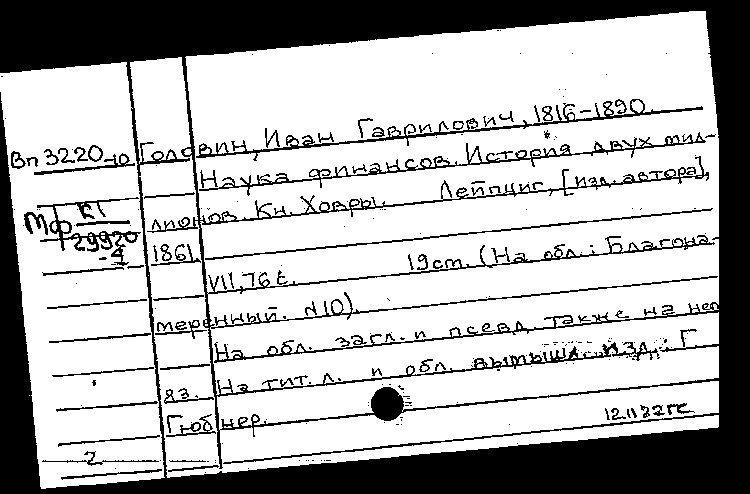 Вп 3220-10 Головин, Иван Гаврилович, 1816-1890.
Наука финансов. История двух мил-
Мф К1 лионов. Кн. Ховры. Лейпциг, [изд. автора],
29920-4 1861.
VII, 76 с. 19 см. (На обл.: Благона-
меренный. N10).
На обл. загл. и псевд. также на нем
яз. На тит. л. и обл. вымышл. изд.: Г
Гюбнер.
2